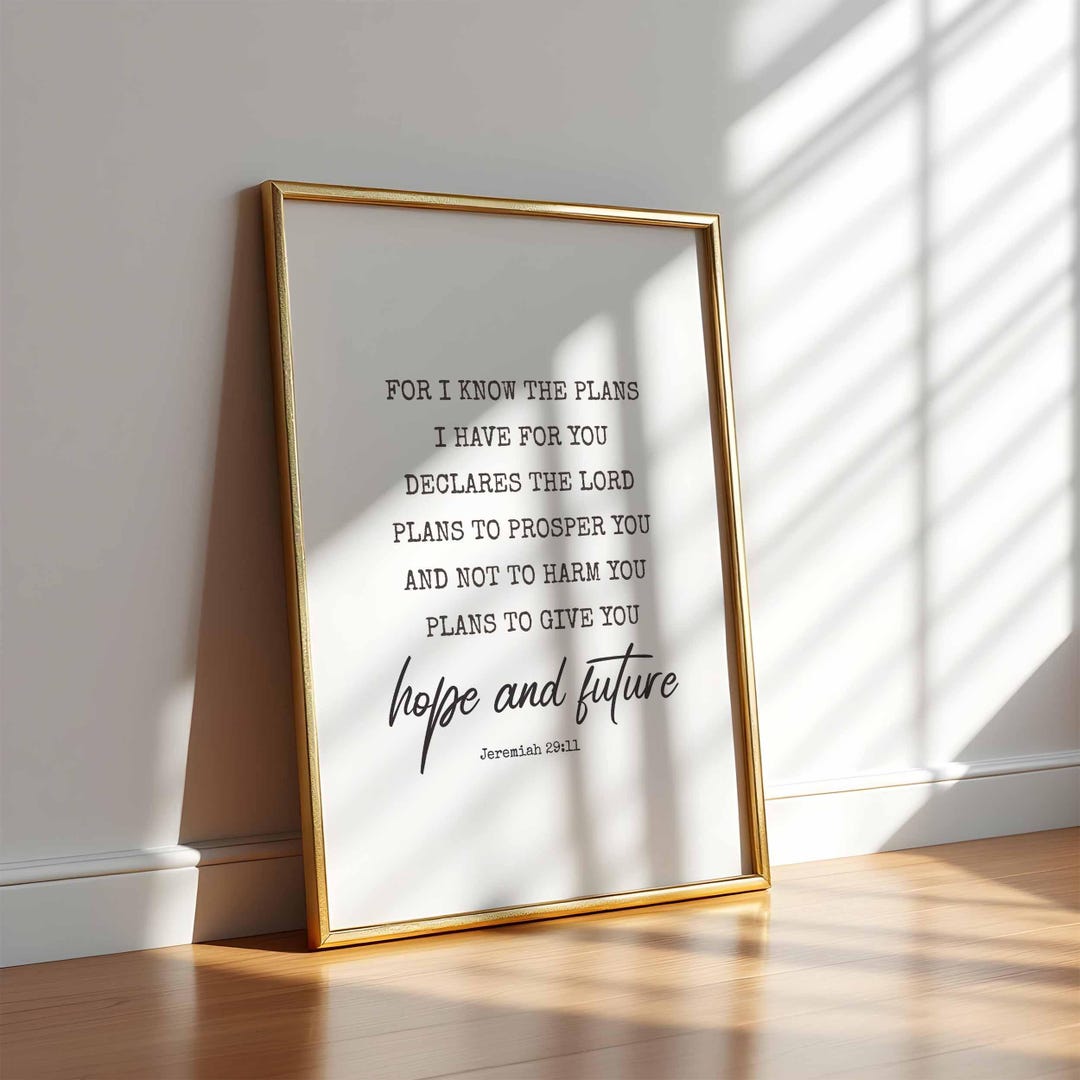 FOR I KNOW THE PLANS
I HAVE FOR YOU
DECLARES THE LORD
PLANS TO PROSPER YOU
AND NOT TO HARM YOU
PLANS TO GIVE YOU
hope and future
Jeremiah 29:11